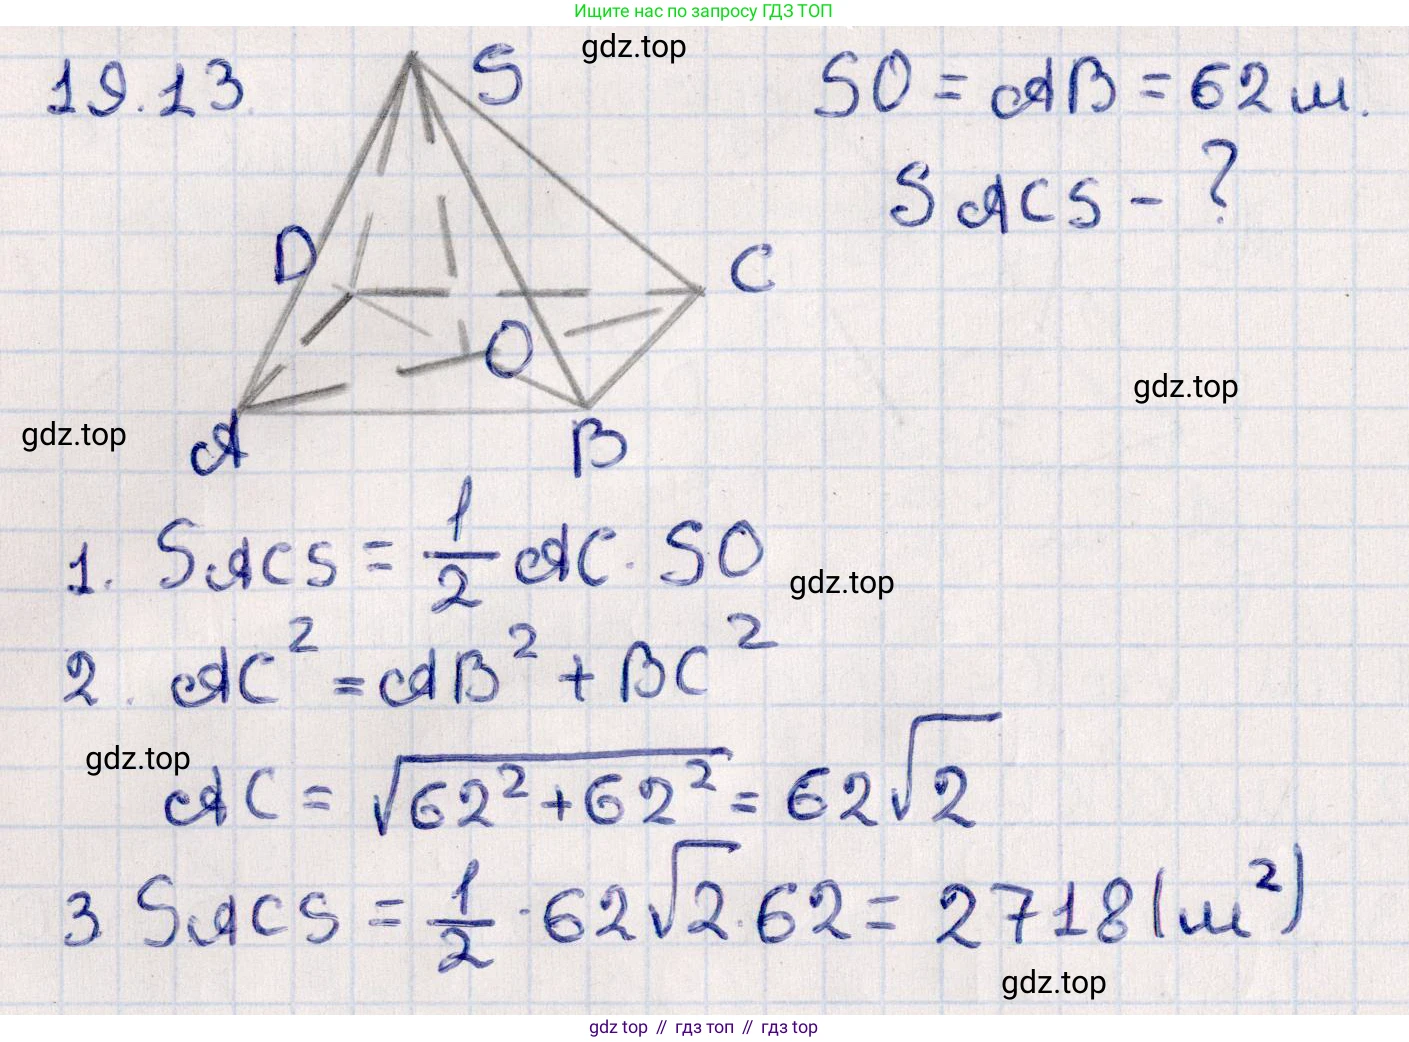 Ищите нас по запросу ГДЗ ТОП
gdz.top
19.13.
S
SO = AB = 62 м.
S ACS - ?
D
C
O
gdz.top
gdz.top
A
B
1. S ACS = 1/2 AC · SO
gdz.top
2. AC² = AB² + BC²
gdz.top
AC = √62² + 62² = 62√2
3 S ACS = 1/2 · 62√2 · 62 = 2718 (м²)
gdz.top
gdz top // гдз топ // гдз top